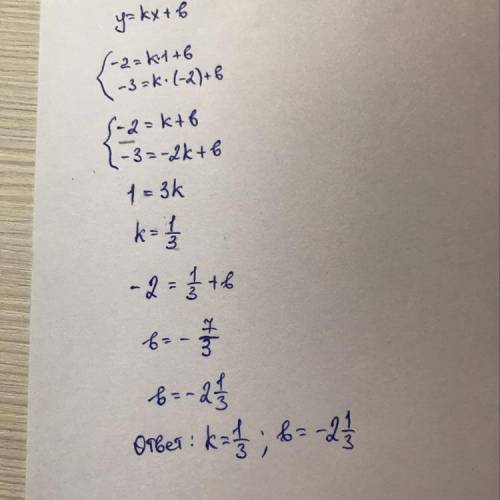 y=kx+b
{-2=k·1+b
-3=k·(-2)+b
{-2=k+b
-3=-2k+b
1=3k
k=1/3
-2=1/3+b
b=-7/3
b=-2 1/3
Ответ: k=1/3; b=-2 1/3